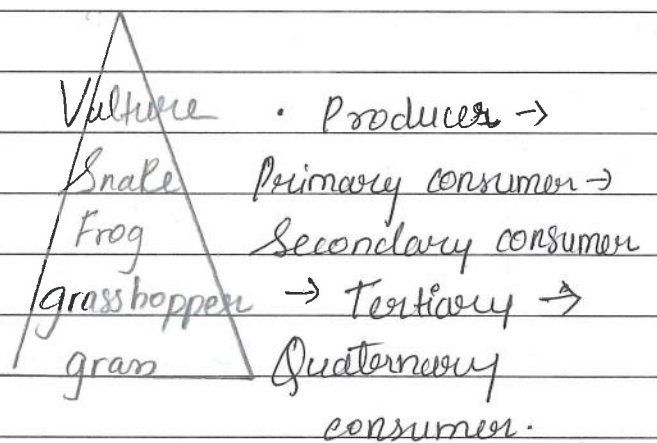 Vulture . Producer →
Snake Primary consumer →
Frog Secondary consumer
grasshopper → Tertiary →
grass Quaternary
consumer.